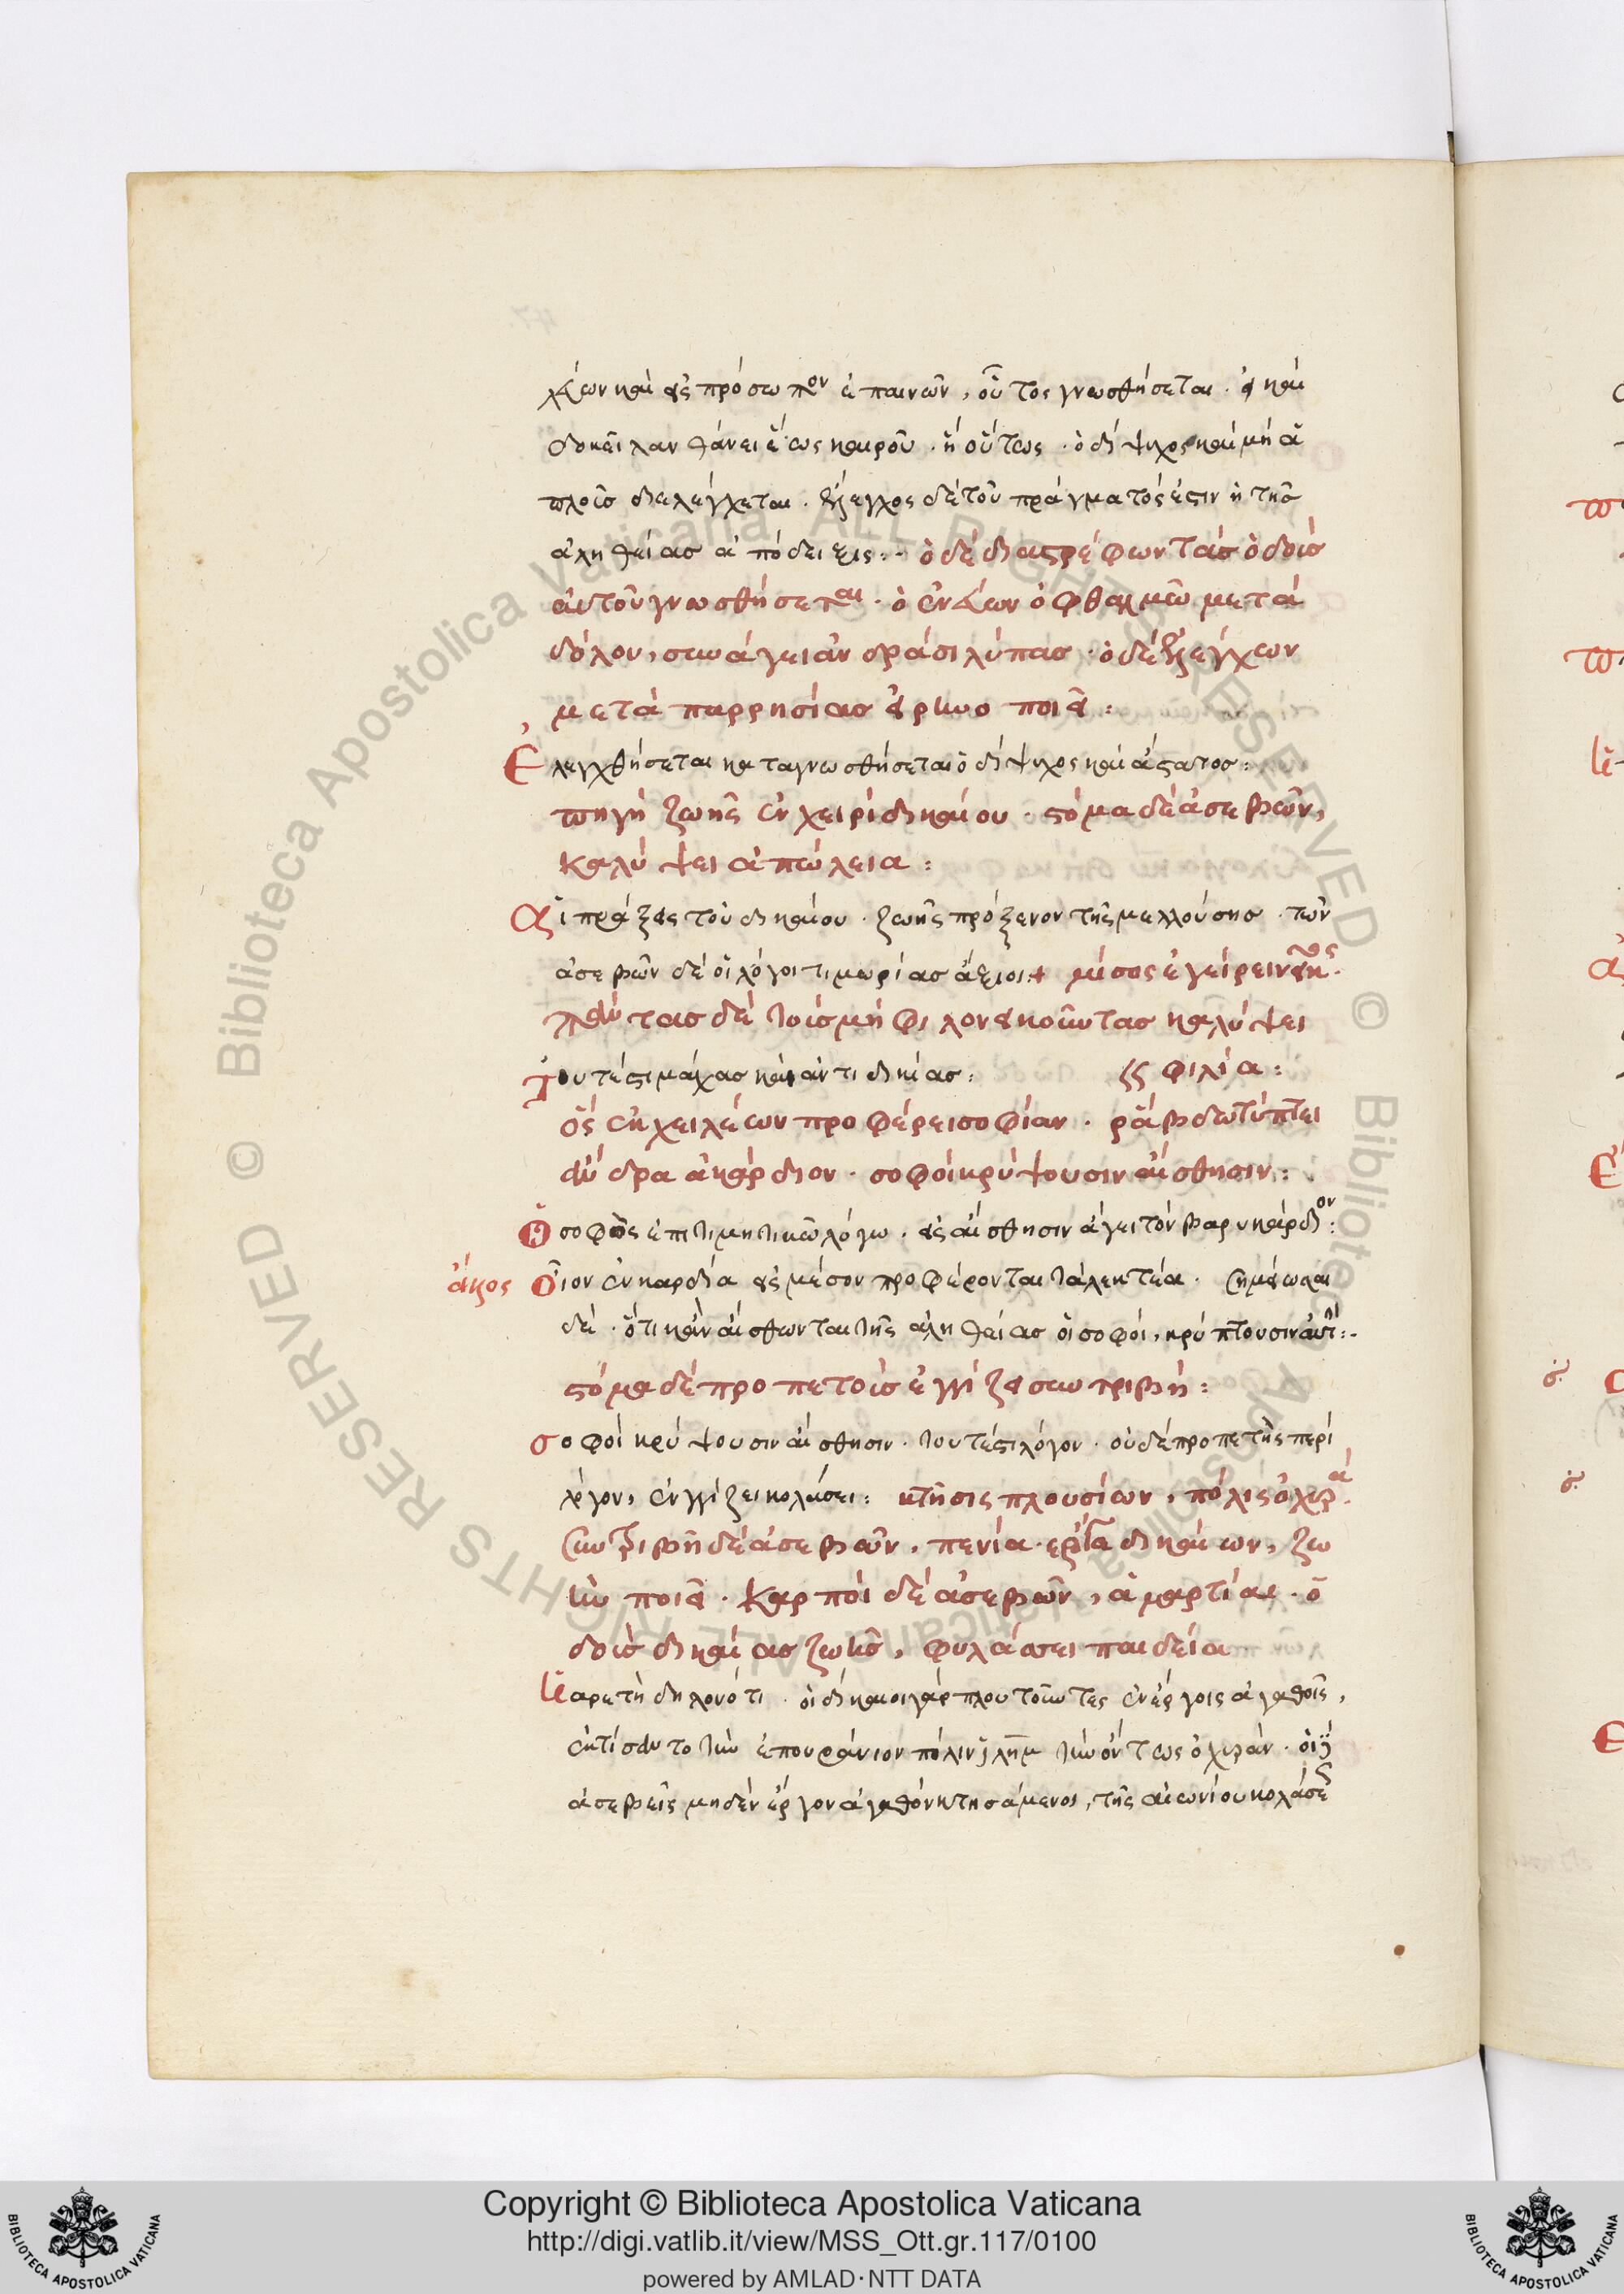 λέων καὶ εἰς πρόσωπον ἐπαινῶν, οὗτος γνωσθήσεται. εἰ καὶ
δοκεῖ λανθάνειν ἕως καιροῦ. ἢ οὕτως. ὁ δίψυχος καὶ μὴ ἁ
πλοῦς διελέγχεται. ἔλεγχος δὲ τοῦ πράγματός ἐστιν ἡ τῆς
ἀληθείας ἀπόδειξις:- ὁ δὲ διαστρέφων τὰς ὁδοὺς
αὐτοῦ γνωσθήσεται. ὁ ἐννεύων ὀφθαλμῶ μετὰ
δόλου, συνάγει ἀνδράσι λύπας. ὁ δὲ ἐλέγχων
μετὰ παρρησίας εἰρηνοποιεῖ:
Ἐλεγχθήσεται καταγνωσθήσεται ὁ δίψυχος καὶ ἄστατος:
πηγὴ ζωῆς ἐν χειρὶ δικαίου. στόμα δὲ ἀσεβῶν,
καλύψει ἀπώλεια:
Αἱ πράξεις τοῦ δικαίου. ζωῆς πρόξενον τῆς μελλούσης. τῶν
ἀσεβῶν δὲ οἱ λόγοι τιμωρίας ἄξιοι:+ μῖσος ἐγείρει νεῖκος.
πάντας δὲ τοὺς μὴ φιλονεικοῦντας καλύψει
Τουτέστι μάχας καὶ ἀντιδικίας: φιλία:
ὃς ἐκ χειλέων προφέρει σοφίαν. ῥάβδω τύπτει
ἄνδρα ἀκάρδιον. σοφοὶ κρύψουσιν αἴσθησιν:
Ὁ σοφὸς ἐπιτιμητικῶ λόγω. εἰς αἴσθησιν ἄγει τὸν βαρυκάρδιον:
ἄλλος Οἷον ἐν καρδία εἰς μέσον προφέρονται τὰ λεκτέα. σημείωσαι
δὲ. ὅτι κἂν αἴσθωνται τῆς ἀληθείας οἱ σοφοί, κρύπτουσιν αὐτή:-
στόμα δὲ προπετοῦς ἐγγίζει συντριβῆ:
σοφοὶ κρύψουσιν αἴσθησιν. τουτέστι λόγον. οὐδὲ προπετὴς περὶ
λόγον, ἐγγίζει κολάσει: κτῆσις πλουσίων, πόλις ὀχυρά.
συντριβὴ δὲ ἀσεβῶν, πενία. ἔργα δικαίων, ζω
ὴν ποιεῖ. καρποὶ δὲ ἀσεβῶν, ἁμαρτίαι. ὁ
δοὺς δικαίας ζωῆς, φυλάσσει παιδεία
ἡ ἀρετὴ δηλονότι. οἱ δίκαιοι γὰρ πλουτοῦντες ἐν ἔργοις ἀγαθοῖς,
ἐκτίσαντο τὴν ἐπουράνιον πόλιν ἰλημ τὴν ὄντως ὀχυράν. οἱ δὲ
ἀσεβεῖς μηδὲν ἔργον ἀγαθὸν κτησάμενοι, τῆς αἰωνίου κολάσε
Copyright © Biblioteca Apostolica Vaticana
http://digi.vatlib.it/view/MSS_Ott.gr.117/0100
powered by AMLAD·NTT DATA